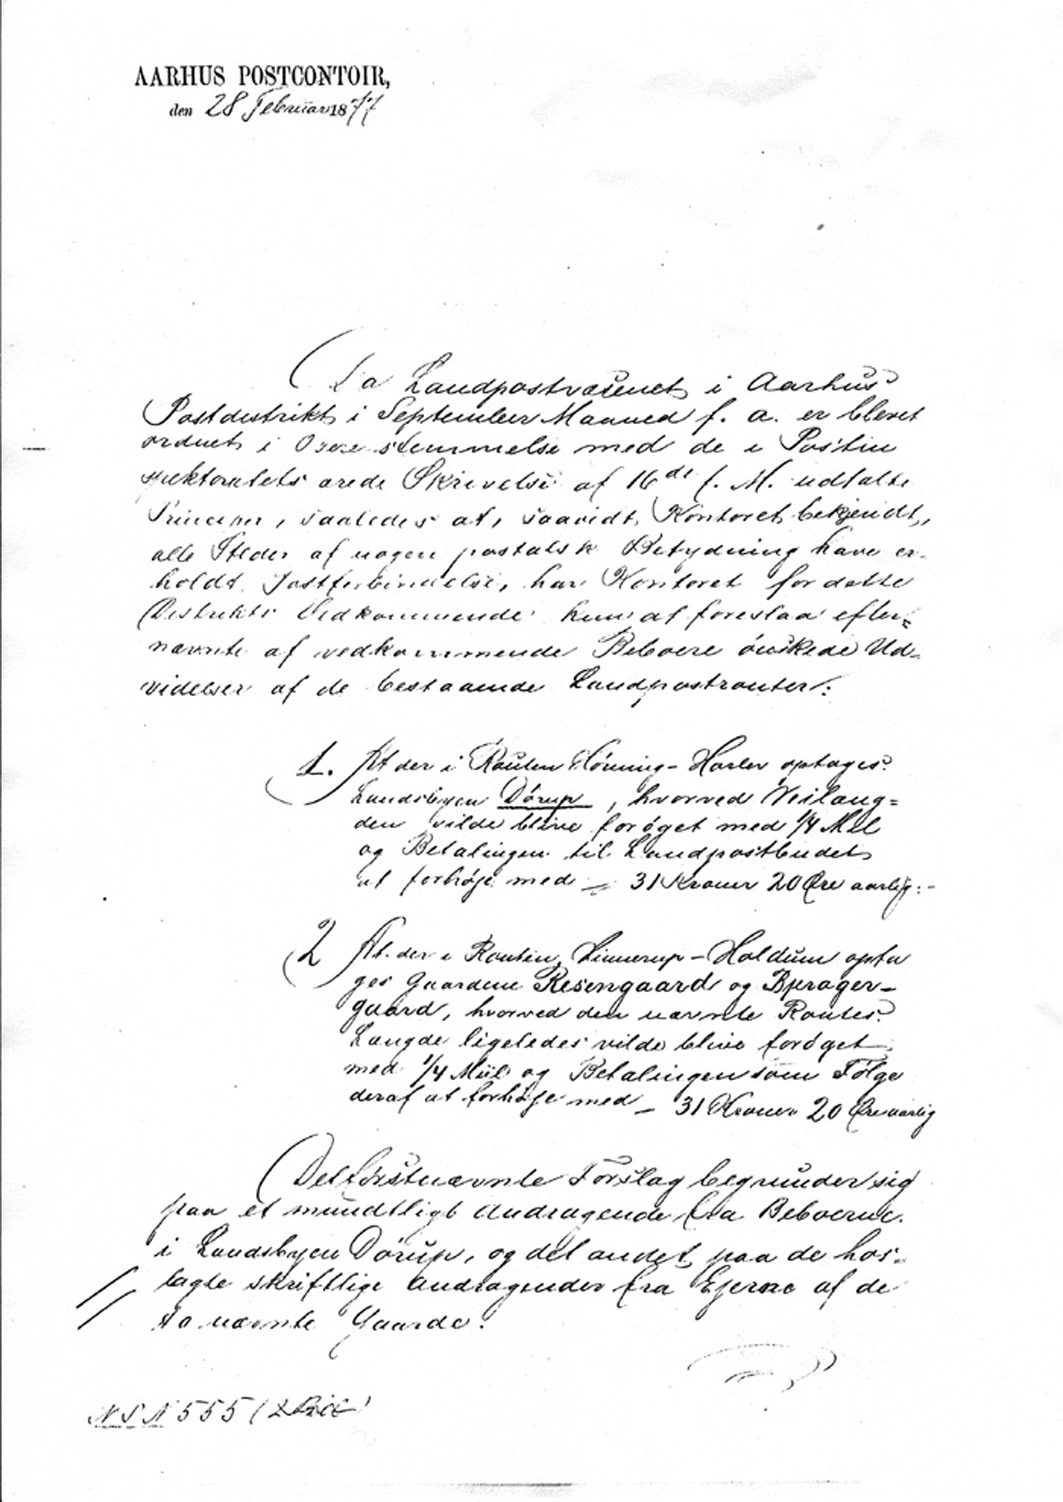 AARHUS POSTCONTOIR,
den 28 Februar 1877
Da Landpostvæsenet i Aarhus
Postdistrikt i September Maaned f. a. er blevet
ordnet i Overensstemmelse med de i Postin
spektoratets ærede Skrivelse af 16de f. M. udtalte
Principer, saaledes at, saavidt Kontoret bekjendt,
alle Steder af nogen postalsk Betydning have er-
holdt Postforbindelse, har Kontoret for dette
Distrikts Vedkommende kun at foreslaa efter-
nævnte af vedkommende Beboere ønskede Ud-
videlser af de bestaaende Landpostrouter:
1. At der i Routen Hørning - Harlev optages
Landsbyen Dørup, hvorved Veilæng=
den vilde blive forøget med 1/4 Mil
og Betalingen til Landpostbudet
at forhøje med - 31 Kroner 20 Øre aarlig:-
2 At der i Routen Linnerup - Haldum opta
ges Gaardene Resengaard og Bjrager-
gaard, hvorved den nævnte Routes
Længde ligeledes vilde blive forøget
med 1/4 Miil og Betalingen som Følge
deraf at forhøje med - 31 Kroner 20 Øre aarlig
Det førstnævnte Forslag begrunder sig
paa et mundtligt Andragende fra Beboerne
i Landsbyen Dørup, og det andet paa de hos-
lagte skriftlige Andragender fra Ejerne af de
to nævnte Gaarde.
N S N 555 (2